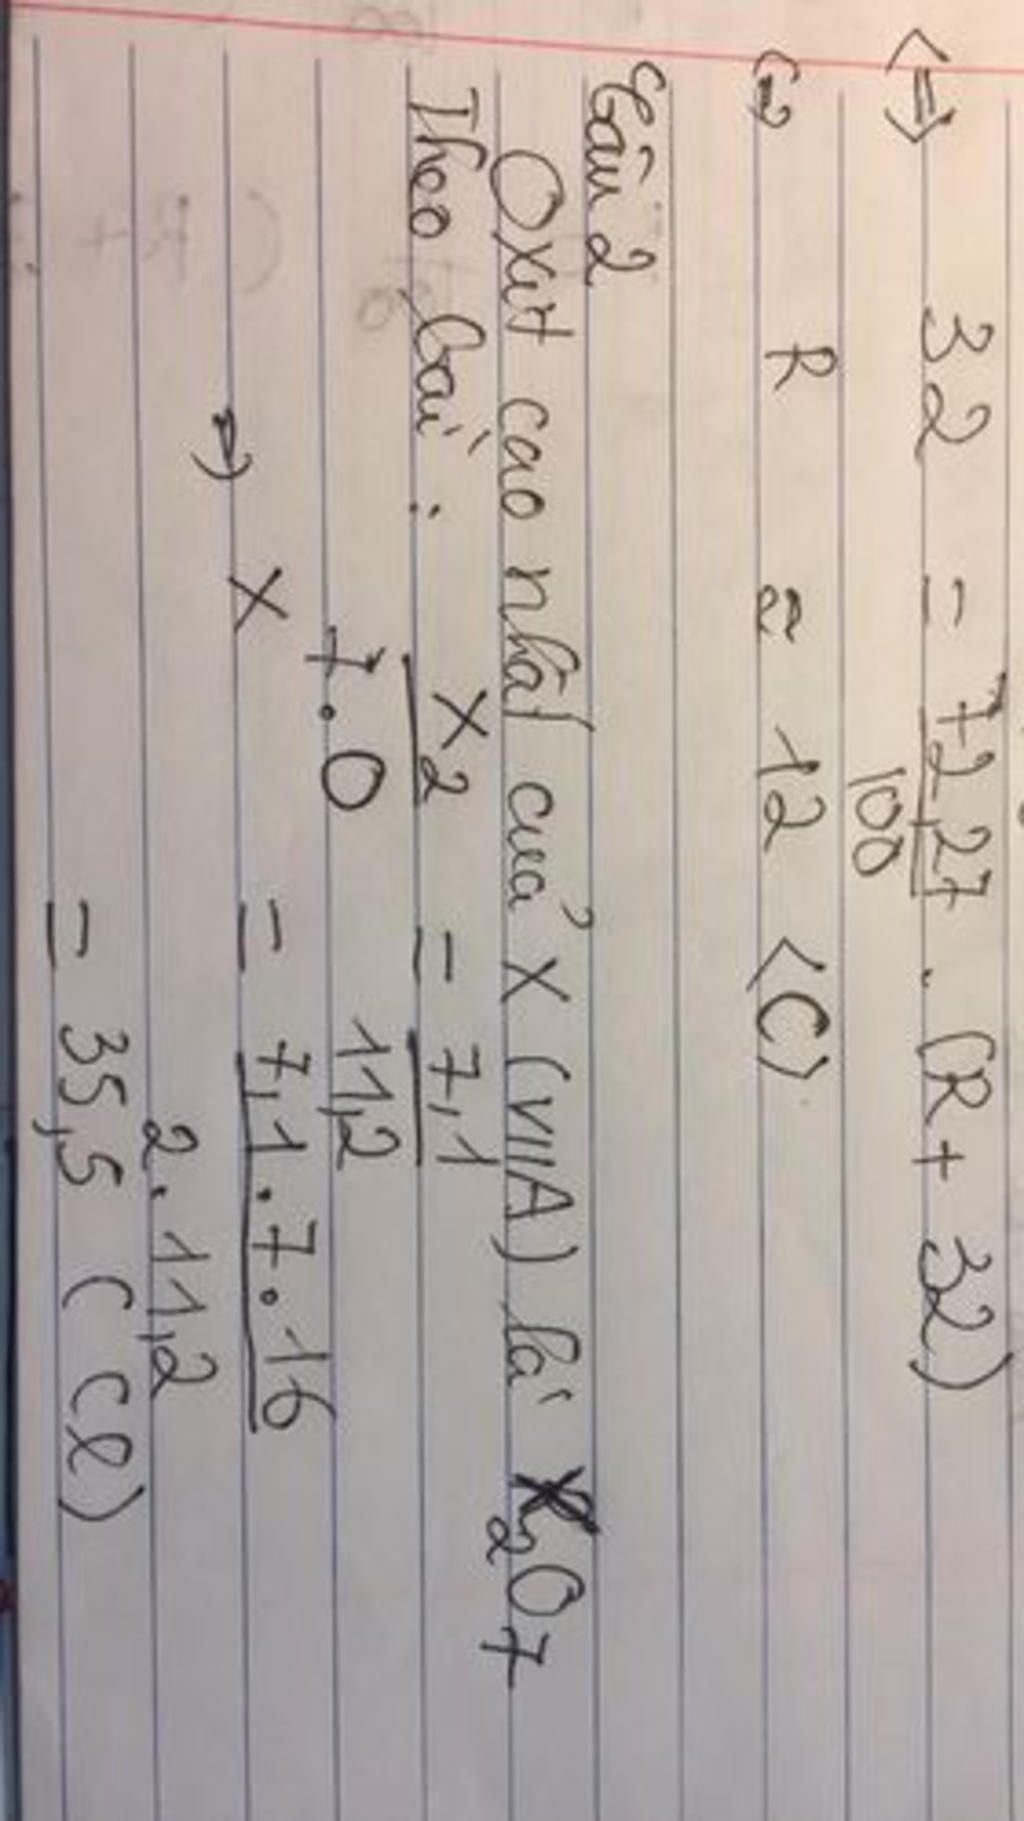 <=> 32 = 72,27/100 . (R + 32)
<=> R ≈ 12 (C)
Câu 2
Oxit cao nhất của X (VIIA) là X2O7
Theo bài : X2/7.O = 7,1/11,2
=> X = 7,1.7.16/2.11,2
= 35,5 (Cl)